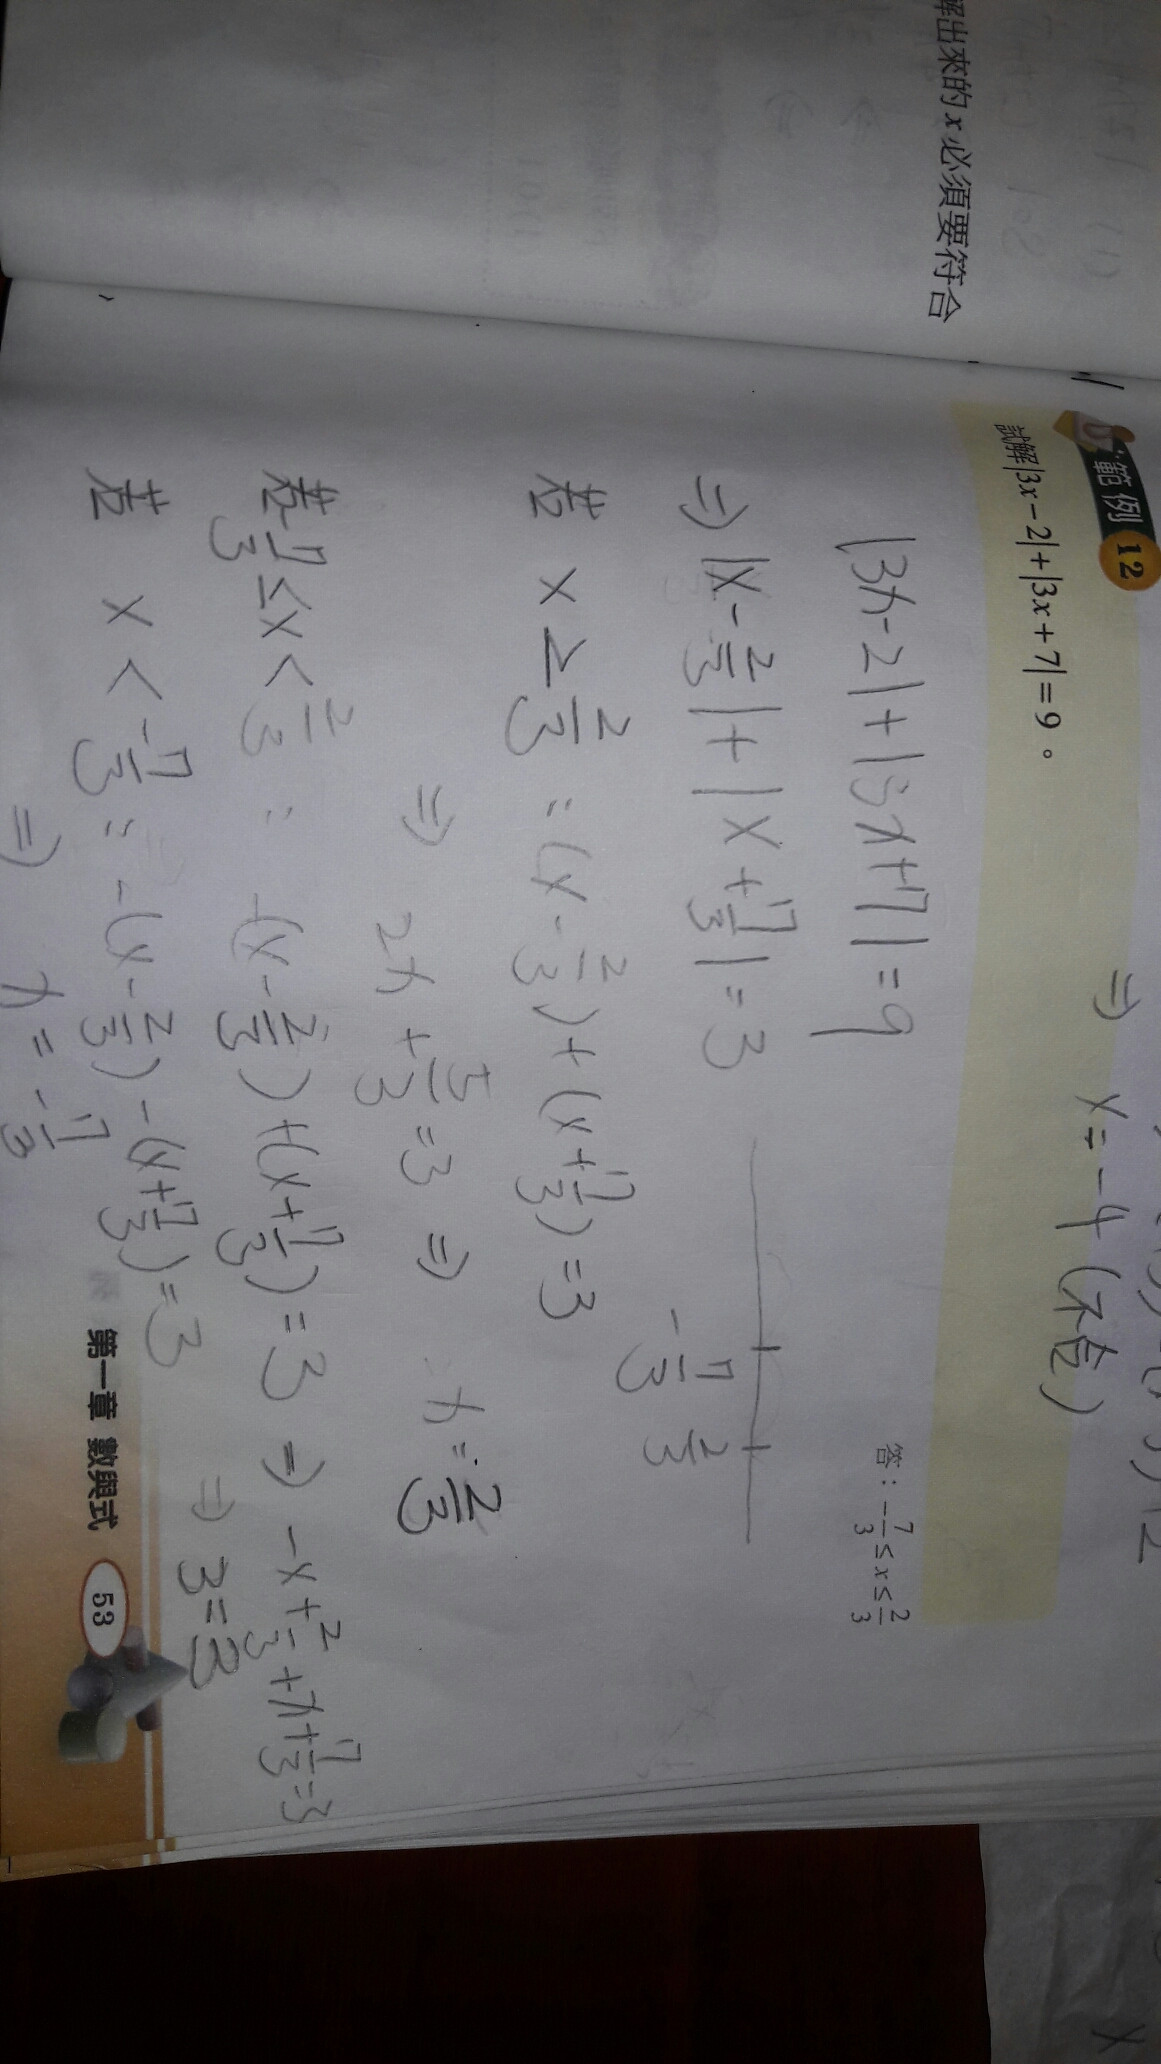 解出來的 x 必須要符合
⇒ x = -4 (不合)
範例 12
試解|3x-2|+|3x+7|=9。
答：-7/3 ≤ x ≤ 2/3
|3x-2|+|3x+7|=9
⇒ |x-2/3|+|x+7/3|=3
-7/3 2/3
若 x ≥ 2/3 : (x-2/3)+(x+7/3)=3
⇒ 2x+5/3=3 ⇒ x=2/3
若 -7/3 ≤ x < 2/3 : -(x-2/3)+(x+7/3)=3 ⇒ -x+2/3+x+7/3=3
⇒ 3=3
若 x < -7/3 : -(x-2/3)-(x+7/3)=3
⇒ x=-7/3
第一章 數與式 53